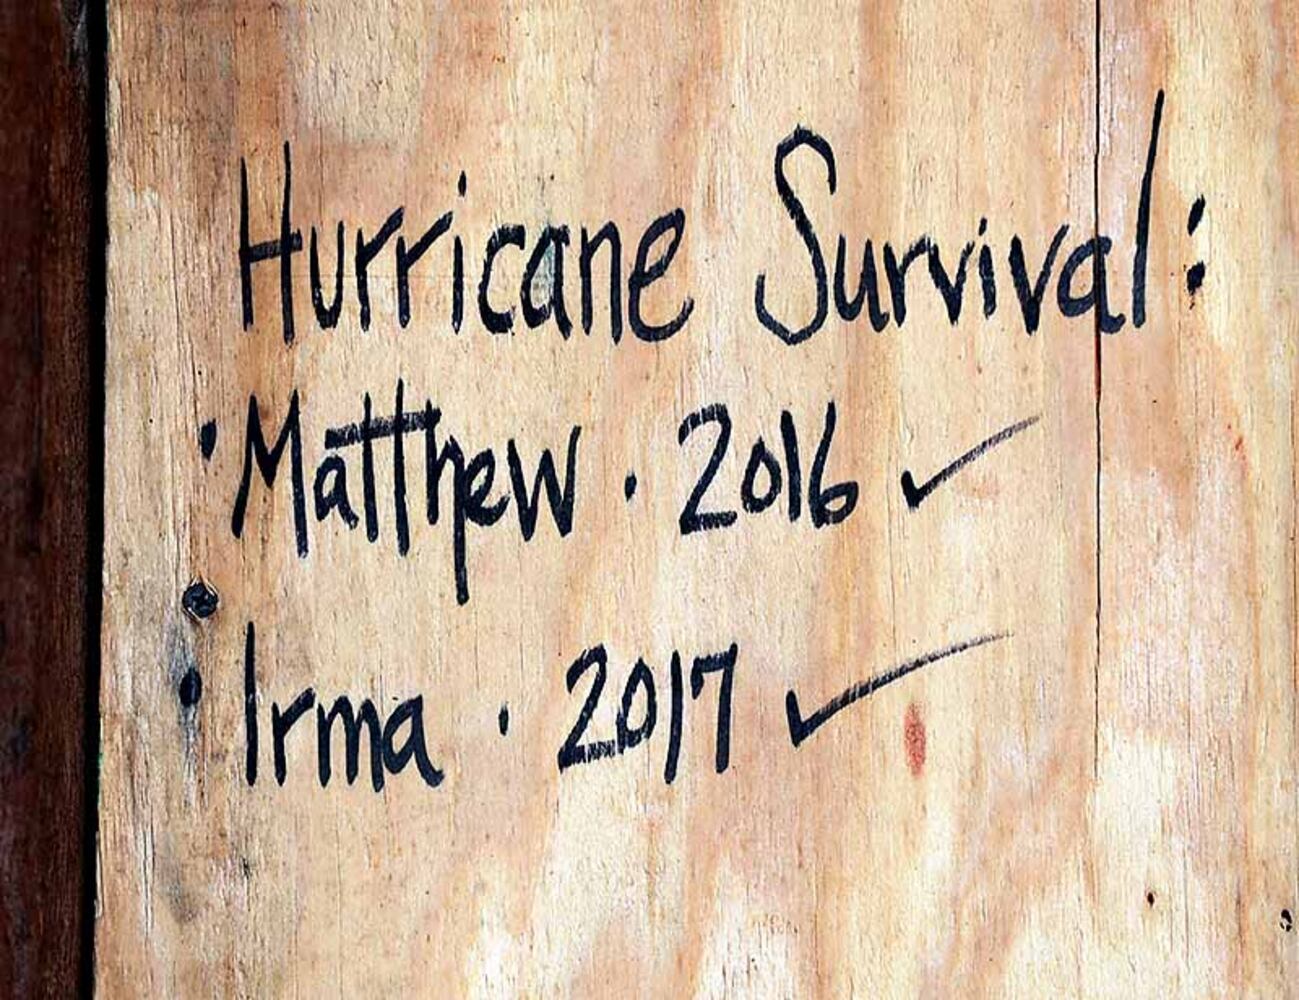 Hurricane Survival:
· Matthew · 2016 ✓
· Irma · 2017 ✓